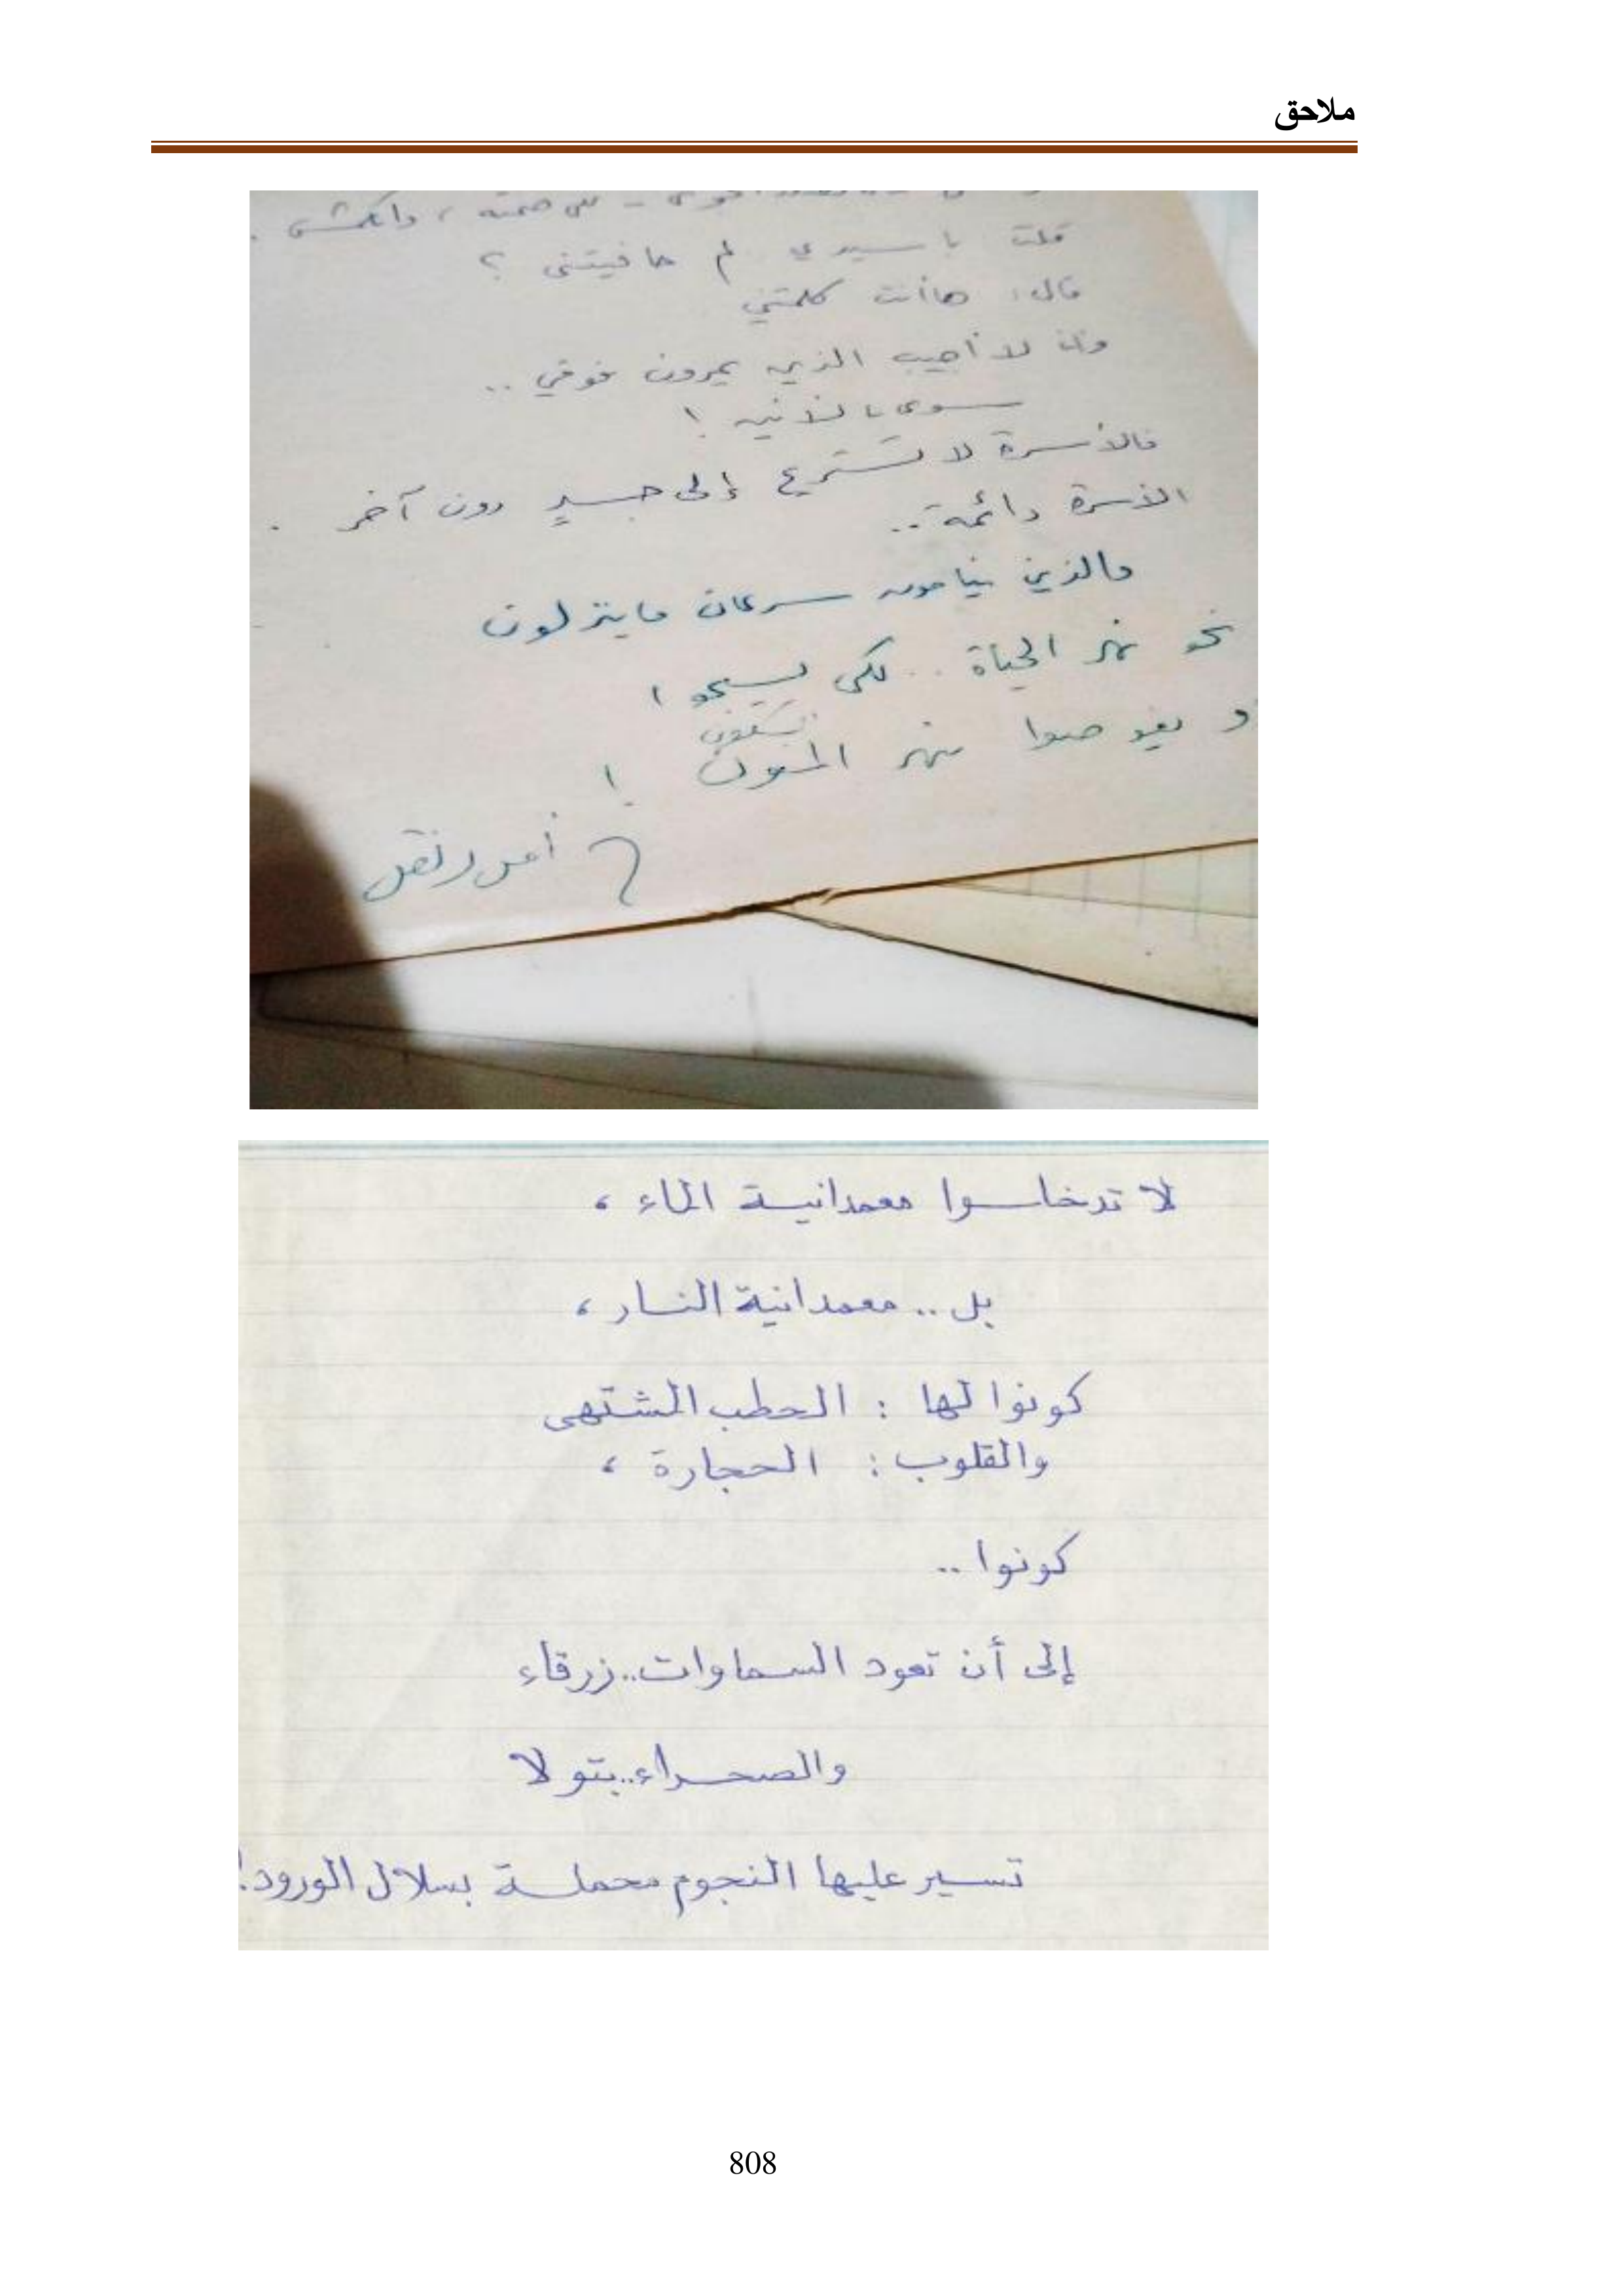 ملاحق
صمته، وانكمش.
قلت يا سيدي لم جافيتني؟
قال: ها أنت كلمتني
وأنا لا أجيب الذين يمرون فوقي..
سوى بالأنين!
فالأسرة لا تستريح إلى جسدٍ دون آخر.
الأسرة دائمة..
والذين ينامون سرعان ما ينزلون
نحو نهر الحياة.. لكي يسبحوا
أو يغوصوا بنهر
السكون!
أمل دنقل
لا تدخلوا معمدانية الماء،
بل.. معمدانية النار،
كونوا لها: الحطب المشتهى
والقلوب: الحجارة،
كونوا..
إلى أن تعود السماوات.. زرقاء
والصحراء.. بتولا
تسير عليها النجوم محملة بسلال الورود!
808